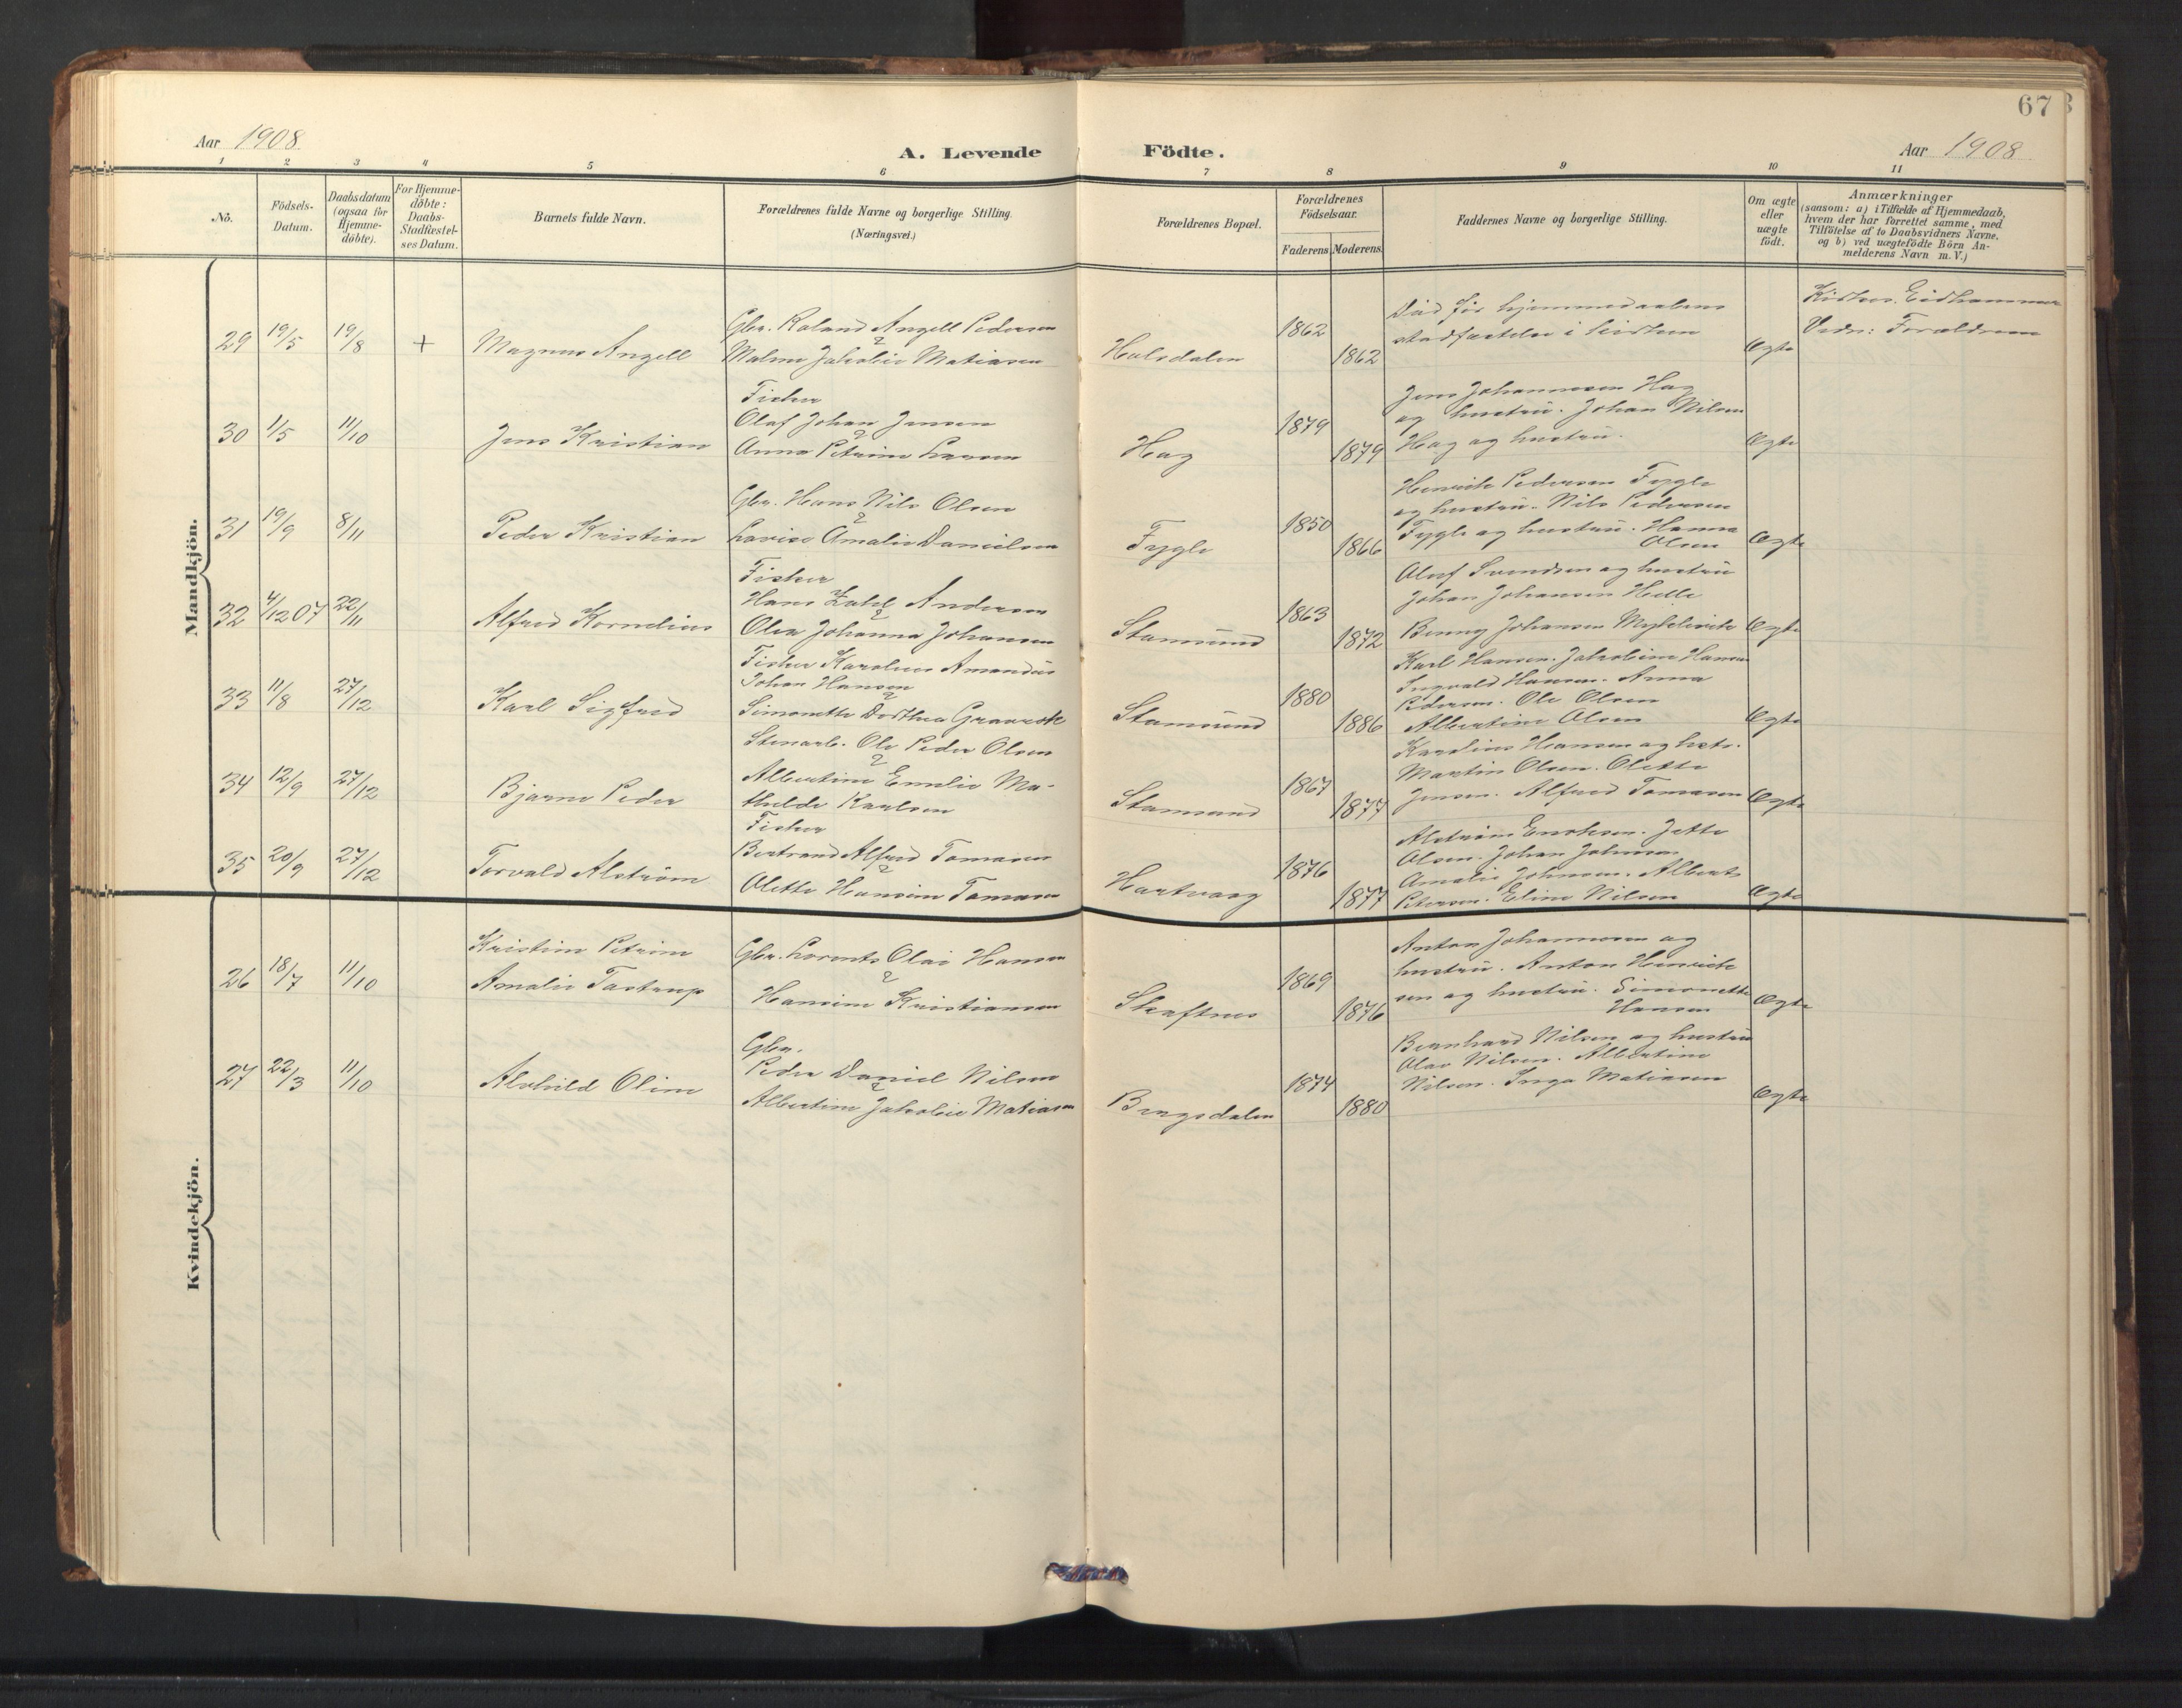 67
Aar 1908
A. Levende Födte.
Aar 1908
1 2 3 4 5 6 7 8 9 10 11
No.
Födsels-Datum.
Daabsdatum (ogsaa for Hjemme-döbte).
For Hjemme-döbte: Daabs-Stadfæstel-ses Datum.
Barnets fulde Navn.
Forældrenes fulde Navne og borgerlige Stilling.
(Næringsvei.)
Forældrenes Bopæl.
Forældrenes Födselsaar.
Faderens Moderens
Faddernes Navne og borgerlige Stilling.
Om ægte eller uægte födt.
Anmærkninger
(saasom: a) i Tilfælde af Hjemmedaab,
hvem der har forrettet samme, med
Tilföielse af to Daabsvidners Navne,
og b) ved uægtefödte Börn An-
melderens Navn m. V.)
Mandkjön.
29 19/5 19/8 + Magnus Angell
Gbr. Roland Angell Pedersen
&
Malene Jakobie Matiasen
Holsdalen
1862
1862
Död för hjemmedaabens
stadfæstelse i kirken
Ægte
Kirkes. Eidhammer
Vidn: Forældrene
30 1/5 11/10 Jens Kristian
Fisker
Olaf Johan Jensen
&
Anna Petrine Larsen
Hag
1879
1879
Jens Johannesen Hag
og hustru. Johan Nilsen
Hag og hustru.
Ægte
31 19/9 8/11 Peder Kristian
Gbr. Hans Nils Olsen
&
Lovise Amalie Danielsen
Fygle
1850
1866
Henrik Pedersen Fygle
og hustru. Nils Pedersen
Fygle og hustru. Hanna
Olsen
Ægte
32 4/12 07 22/11 Alfred Kornelius
Fisker
Hans Zahl Andersen
&
Olea Johanna Johansen
Stamsund
1863
1872
Oluf Svendsen og hustru
Johan Johansen Helle
Benny Johansen
Ægte
33 11/8 27/12 Karl Sigfred
Fisker Karolius Amandus
Johan Hansen
&
Simonette Dorthea
Stamsund
1880
1886
Karl Hansen. Jakobine Hansen
Ingvald Hansen. Anna
Pedersen. Ole Olsen
Albertine Olsen
Ægte
34 12/9 27/12 Bjarne Peder
Stenarb. Ole Peder Olsen
&
Albertine Emelie Ma-
thilde Karlsen
Stamsund
1867
1877
Karolius Hansen og hstr.
Martin Olsen. Olette
Jensen. Alfred Tomasen
Ægte
35 20/9 27/12 Torvald Alström
Fisker
Bertrand Alfred Tomasen
&
Olette Hansine Tomasen
Hartvaag
1876
1877
Alström Enoksen. Jette
Olsen. Johan Johnsen
Amalie Johnsen. Albert
Petersen. Eline Nilsen
Ægte
Kvindekjön.
26 18/7 11/10 Kristine Petrine
Amalie Tastrup
Gbr. Lorents Olai Hansen
&
Hansine Kristiansen
Skaftnes
1869
1876
Anton Johannesen og
hustru. Anton Henrik
sen og hustru. Simonette
Hansen
Ægte
27 22/3 11/10 Alvhild Oline
Gbr.
Peder Daniel Nilsen
&
Albertine Jakobie Matiasen
Bregsdalen
1874
1880
Bernhard Nilsen og hustru
Olav Nilsen. Albertine
Nilsen. Inga Matiasen
Ægte